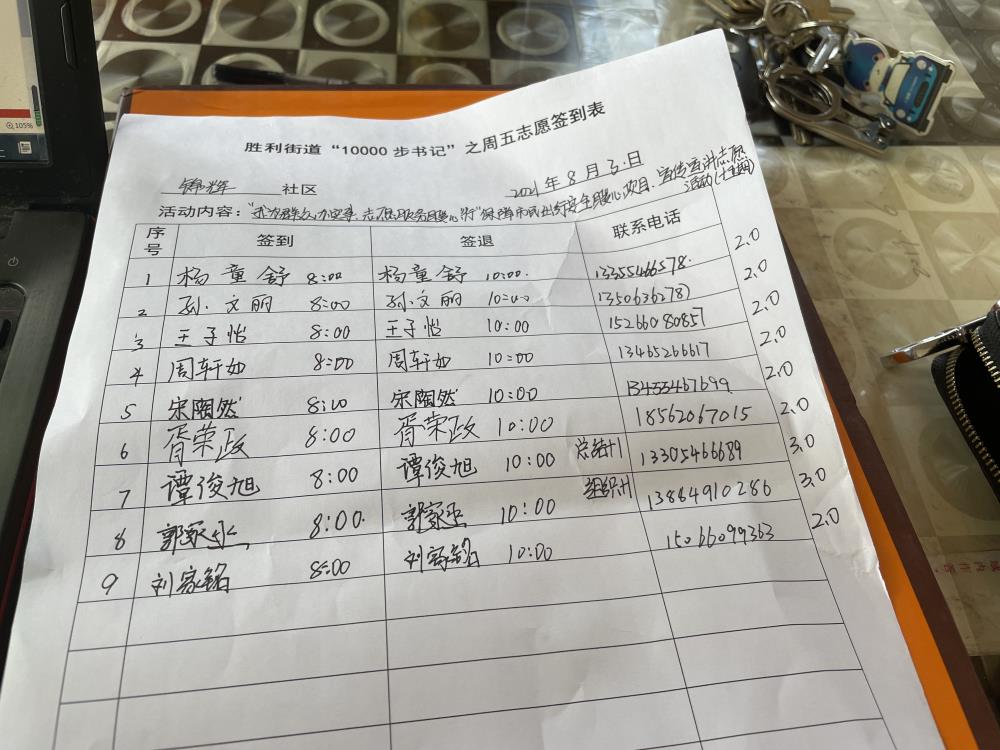 105%
胜利街道“10000步书记”之周五志愿签到表
锦辉 社区 2021年8月3日
活动内容：“我为群众办实事，志愿服务暖心行”保障市民出行安全暖心项目、宣传宣讲志愿活动
序号 签到 签退 联系电话
1 杨童舒 8:00 杨童舒 10:00 13355466578 2.0
2 孙文丽 8:00 孙文丽 10:00 13506362787 2.0
3 王子怡 8:00 王子怡 10:00 15266080857 2.0
4 周轩如 8:00 周轩如 10:00 13465266617 2.0
5 宋陶然 8:00 宋陶然 10:00 13455467699 2.0
6 胥荣政 8:00 胥荣政 10:00 18562067015 2.0
7 谭俊旭 8:00 谭俊旭 10:00 总结计 13305466689 3.0
8 郭家 8:00 郭家 10:00 组织计 13864910286 3.0
9 刘家铭 8:00 刘家铭 10:00 15066099363 2.0